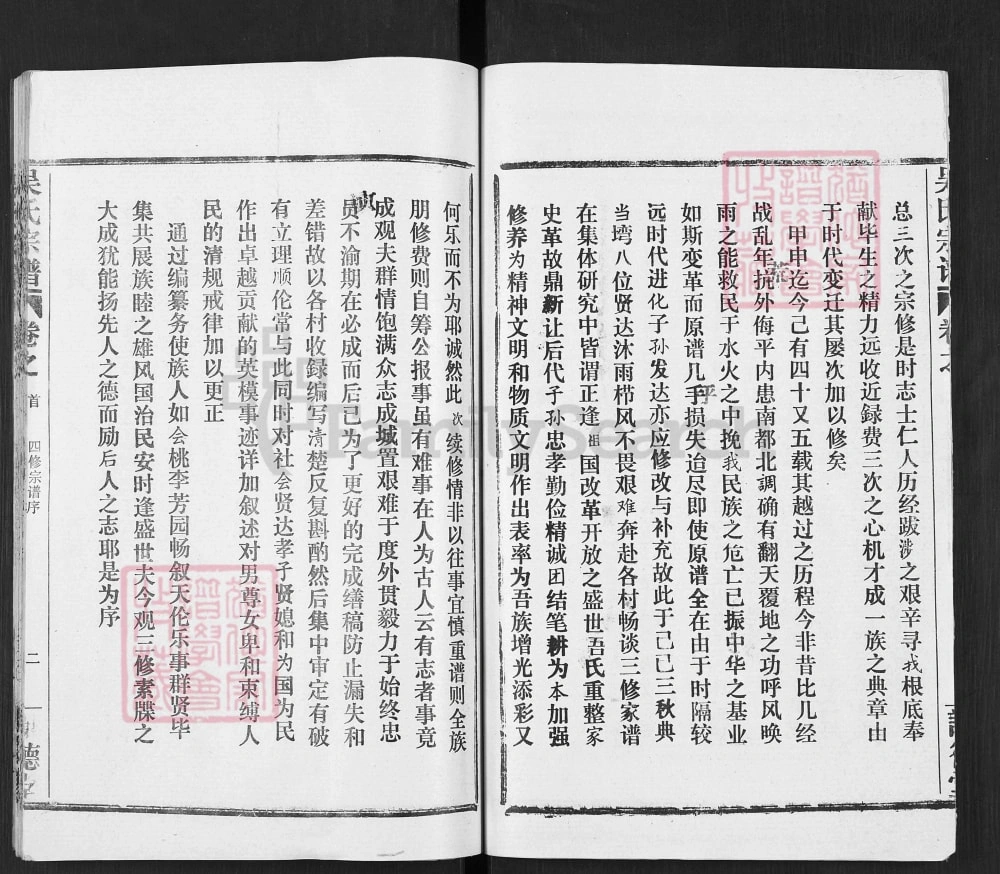 总三次之宗修是时志士仁人历经跋涉之艰辛寻我根底奉
献毕生之精力远收近録费三次之心机才成一族之典章由
于时代变迁其屡次加以修矣
甲申迄今己有四十又五载其越过之历程今非昔比几经
战乱年扰外侮平内患南都北調确有翻天覆地之功呼风唤
雨之能救民于水火之中挽我民族之危亡已振中华之基业
如斯变革而原谱几乎损失迨尽即使原谱全在由于时隔较
远时代进化子孙发达亦应修改与补充故此于己巳三秋典
当塆八位贤达沐雨栉风不畏艰难奔赴各村畅谈三修家谱
在集体研究中皆谓正逢祖国改革开放之盛世吾氏重整家
史革故鼎新让后代子孙忠孝勤俭精诚团结笔耕为本加强
修养为精神文明和物质文明作出表率为吾族增光添彩又
何乐而不为耶诚然此次续修情非以往事宜慎重谱则全族
朋修费则自筹公报事虽有难事在人为古人云有志者事竟
成观夫群情饱满众志成城置艰难于度外贯毅力于始终忠
员不渝期在必成而后已为了更好的完成缮稿防止漏失和
差错故以各村收録编写清楚反复斟酌然后集中审定有破
有立理顺伦常与此同时对社会贤达孝子贤媳和为国为民
作出卓越贡献的英模事迹详加叙述对男尊女卑和束缚人
民的清规戒律加以更正
通过编纂务使族人如会桃李芳园畅叙天伦乐事群贤毕
集共展族睦之雄风国治民安时逢盛世夫今观三修素牒之
大成犹能扬先人之德而励后人之志耶是为序
吴氏宗谱
卷之
首
四修宗谱序
二
德
FamilySearch